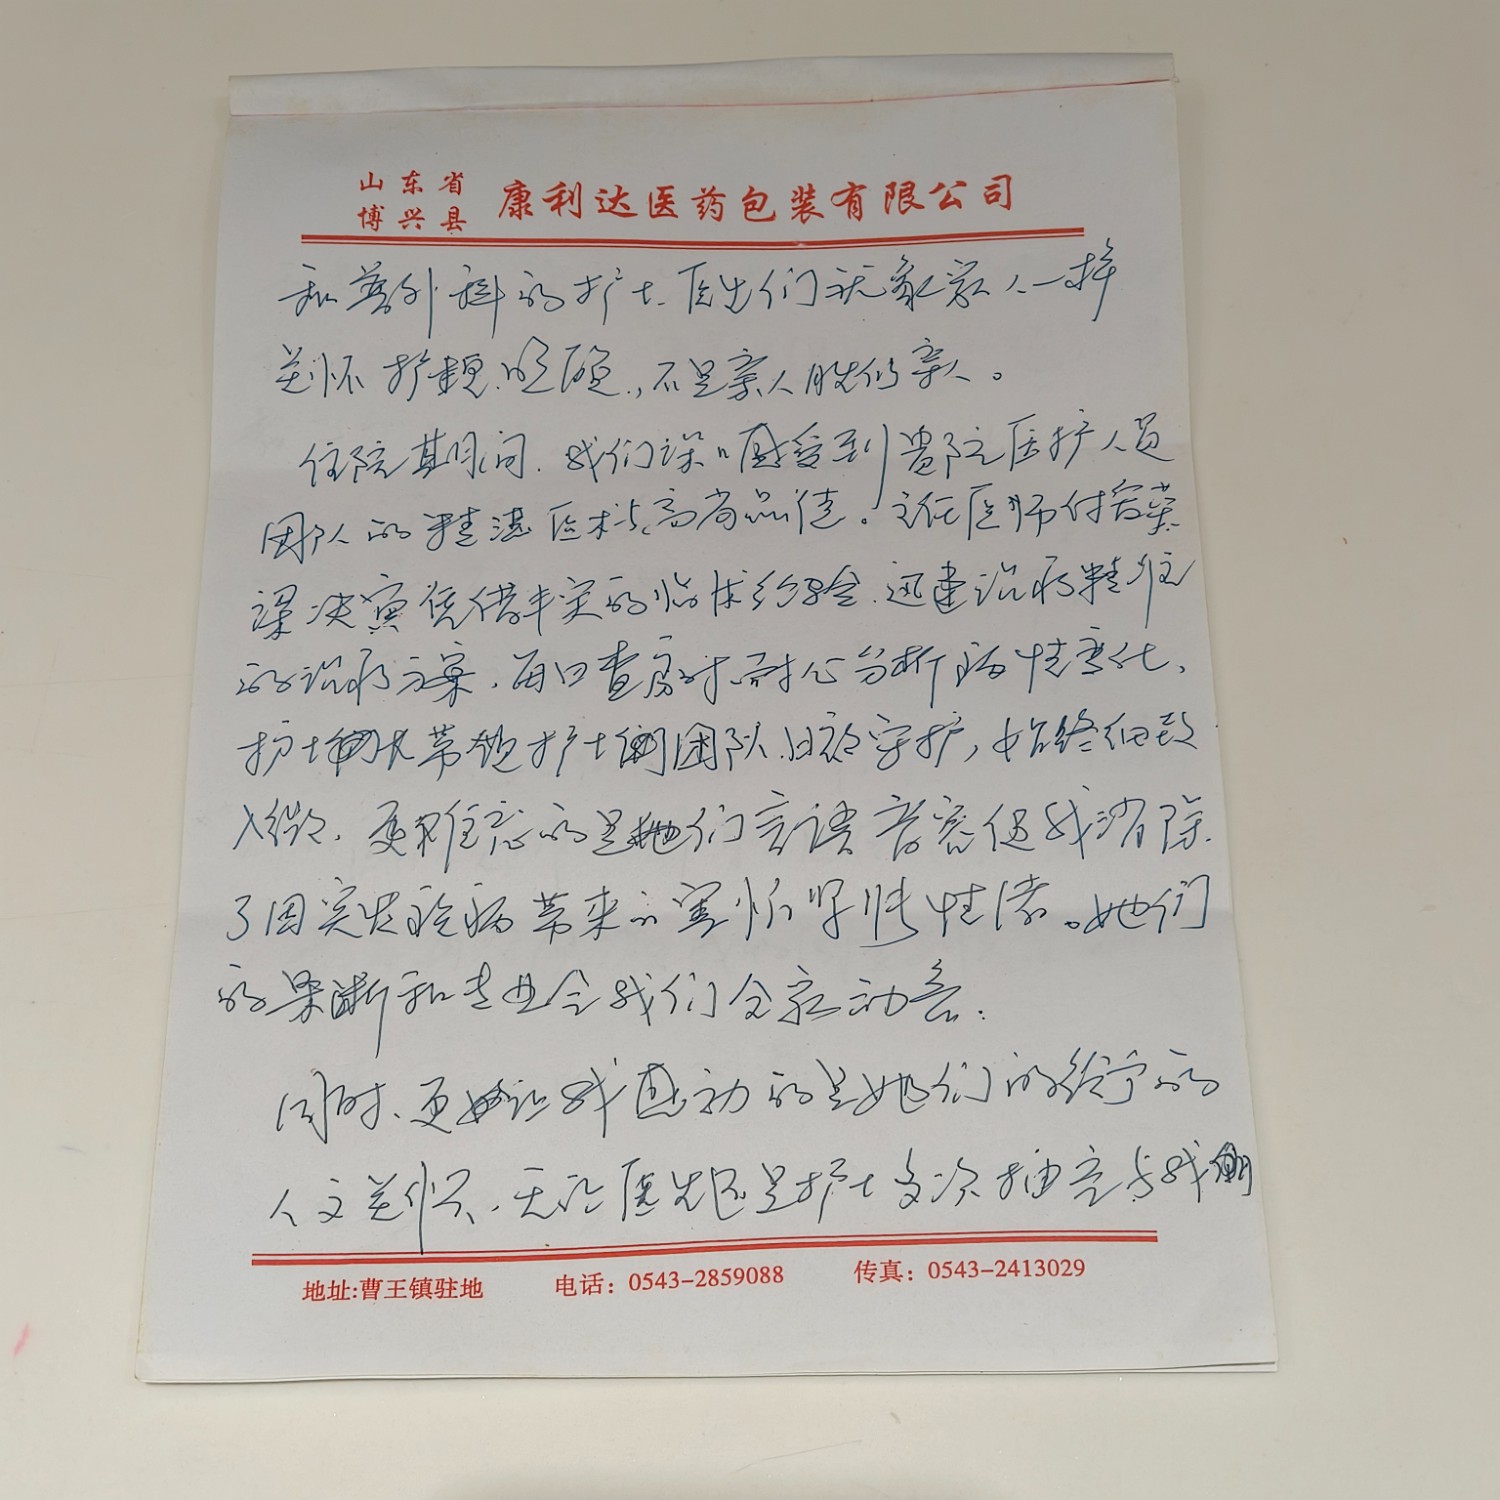 山东省
博兴县
康利达医药包装有限公司
和普外科的护士、医生们就象家人一样
关怀护理、照顾，不是亲人胜似亲人。
住院其间、我们深深感受到贵院医护人员
团队的精湛医术与高尚品德。主任医师付
凭借丰实的临床经验、迅速治疗精准
的治疗方案、每日查房时耐心分析病情变化、
护士长带领护士们团队、日夜守护，始终细致
入微、更难忘的是她们言语 使我消除
了因突发疾病带来的害怕紧张情绪。她们
的果断和专业令我们全家动容.
同时、更让我感动的是她们的给予的
人文关怀、无论医生还是护士多次抽空与我们
地址:曹王镇驻地
电话：0543-2859088
传真：0543-2413029